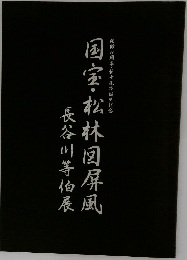 国宝・松林図屏風
長谷川等伯展